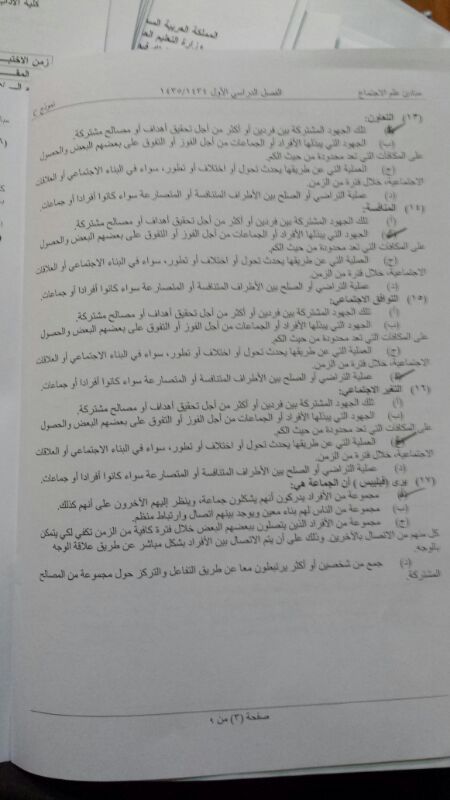 كلية الآداب
المملكة العربية السـ
وزارة التعليم العـ
زمن الاختبـ
المقـ
مبادئ علم الاجتماع
الفصل الدراسي الأول ١٤٣٤/١٤٣٥
نموذج
(١٣) التعاون:
تلك الجهود المشتركة بين فردين أو أكثر من أجل تحقيق أهداف أو مصالح مشتركة.
(ب) الجهود التي يبذلها الأفراد أو الجماعات من أجل الفوز أو التفوق على بعضهم البعض والحصول
على المكافات التي تعد محدودة من حيث الكم.
(ج) العملية التي عن طريقها يحدث تحول أو اختلاف أو تطور، سواء في البناء الاجتماعي أو العلاقات
الاجتماعية، خلال فترة من الزمن.
(د) عملية التراضي أو الصلح بين الأطراف المتنافسة أو المتصارعة سواء كانوا أفرادا أو جماعات
(١٤) المنافسة:
(أ) تلك الجهود المشتركة بين فردين أو أكثر من أجل تحقيق أهداف أو مصالح مشتركة.
الجهود التي يبذلها الأفراد أو الجماعات من أجل الفوز أو التفوق على بعضهم البعض والحصول
على المكافات التي تعد محدودة من حيث الكم.
(ج) العملية التي عن طريقها يحدث تحول أو اختلاف أو تطور، سواء في البناء الاجتماعي أو العلاقات
الاجتماعية، خلال فترة من الزمن.
(د) عملية التراضي أو الصلح بين الأطراف المتنافسة أو المتصارعة سواء كانوا أفرادا أو جماعات.
(١٥) التوافق الاجتماعي:
(أ) تلك الجهود المشتركة بين فردين أو أكثر من أجل تحقيق أهداف أو مصالح مشتركة.
(ب) الجهود التي يبذلها الأفراد أو الجماعات من أجل الفوز أو التفوق على بعضهم البعض والحصول
على المكافات التي تعد محدودة من حيث الكم.
(ج) العملية التي عن طريقها يحدث تحول أو اختلاف أو تطور، سواء في البناء الاجتماعي أو العلاقات
الاجتماعية، خلال فترة من الزمن.
عملية التراضي أو الصلح بين الأطراف المتنافسة أو المتصارعة سواء كانوا أفرادا أو جماعات.
(١٦) التغير الاجتماعي:
(أ) تلك الجهود المشتركة بين فردين أو أكثر من أجل تحقيق أهداف أو مصالح مشتركة.
(ب) الجهود التي يبذلها الأفراد أو الجماعات من أجل الفوز أو التفوق على بعضهم البعض والحصول
على المكافات التي تعد محدودة من حيث الكم.
العملية التي عن طريقها يحدث تحول أو اختلاف أو تطور، سواء في البناء الاجتماعي أو العلاقات
الاجتماعية، خلال فترة من الزمن.
(د) عملية التراضي أو الصلح بين الأطراف المتنافسة أو المتصارعة سواء كانوا أفرادا أو جماعات.
(١٧) يرى (فيليبس) أن الجماعة هي:
مجموعة من الأفراد يدركون أنهم يشكلون جماعة، وينظر إليهم الآخرون على أنهم كذلك.
(ب) مجموعة من الناس لهم بناء معين ويوجد بينهم اتصال وارتباط منظم.
(ج) مجموعة من الأفراد الذين يتصلون ببعضهم البعض خلال فترة كافية من الزمن تكفي لكي يتمكن
كل منهم من الاتصال بالآخرين. وذلك على أن يتم الاتصال بين الأفراد بشكل مباشر عن طريق علاقة الوجه
بالوجه.
(د) جمع من شخصين أو أكثر يرتبطون معا عن طريق التفاعل والتركز حول مجموعة من المصالح
المشتركة.
صفحة (٣) من ٩